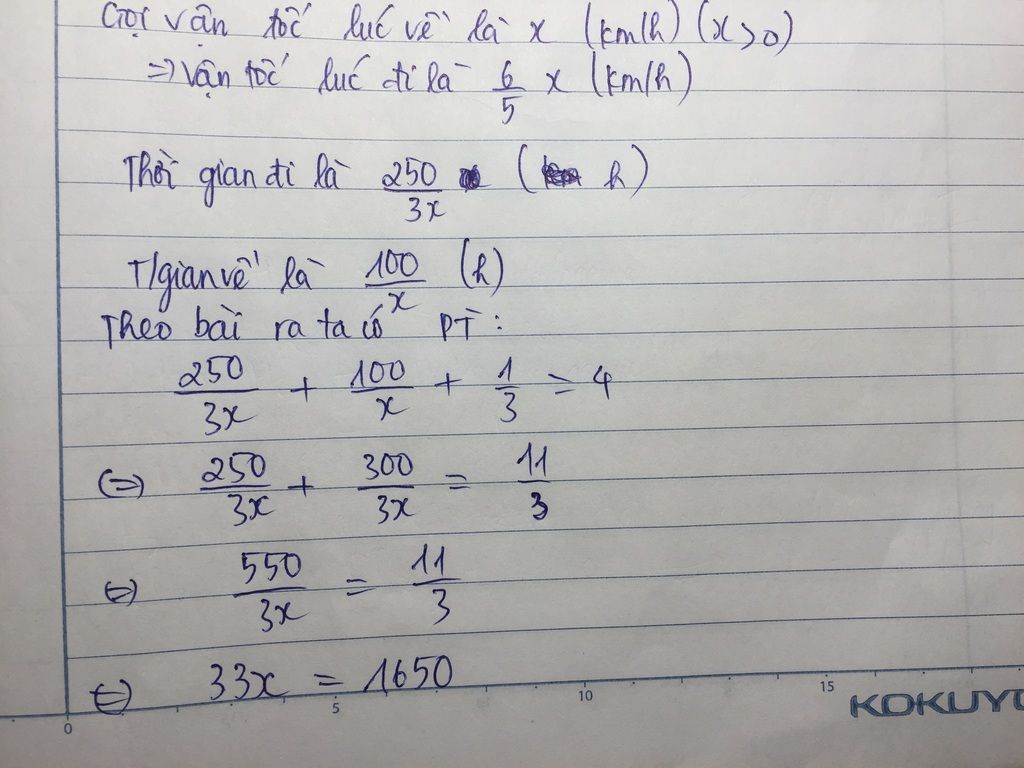 Gọi vận tốc lúc về là x (km/h) (x>0)
=> vận tốc lúc đi là 6/5 x (km/h)
Thời gian đi là 250/3x (h)
T/gian về là 100/x (h)
Theo bài ra ta có PT:
250/3x + 100/x + 1/3 = 4
(=) 250/3x + 300/3x = 11/3
(=) 550/3x = 11/3
(=) 33x = 1650
0 5 10 15 KOKUYO